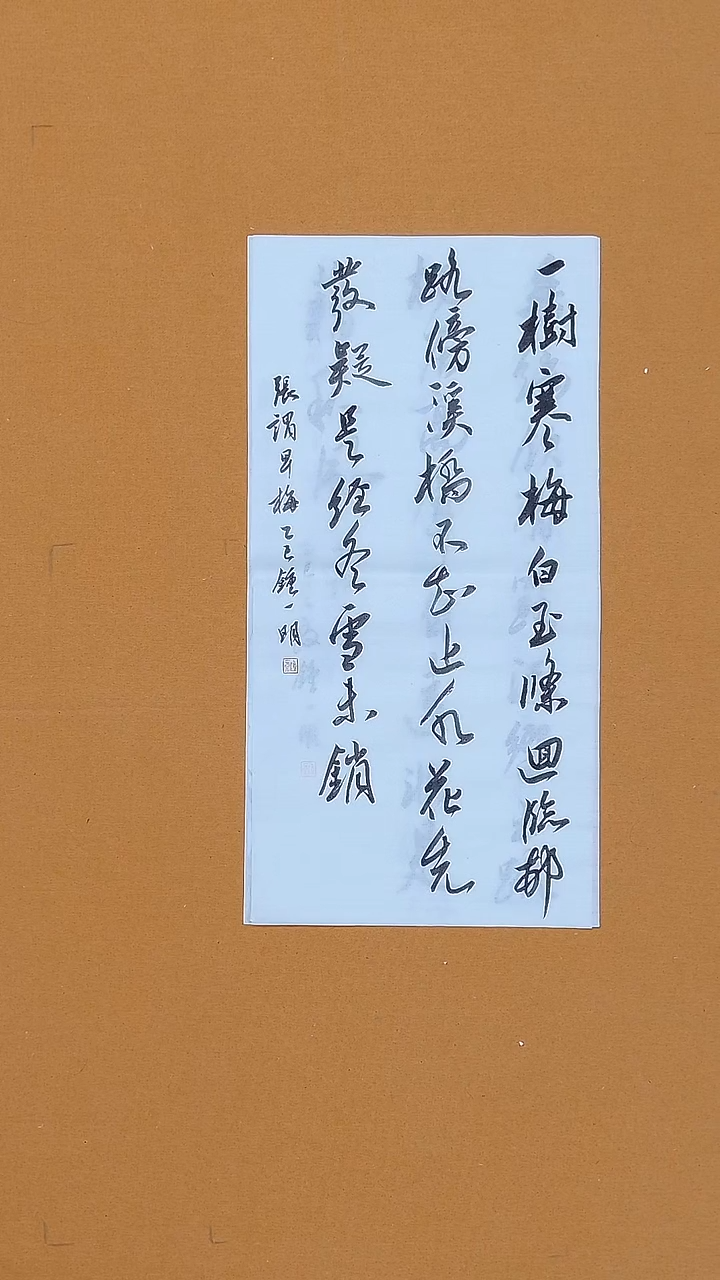 一樹寒梅白玉條迴臨邨
路傍溪橋不知近水花先
發疑是經冬雪未銷
張謂早梅乙巳鍾一明